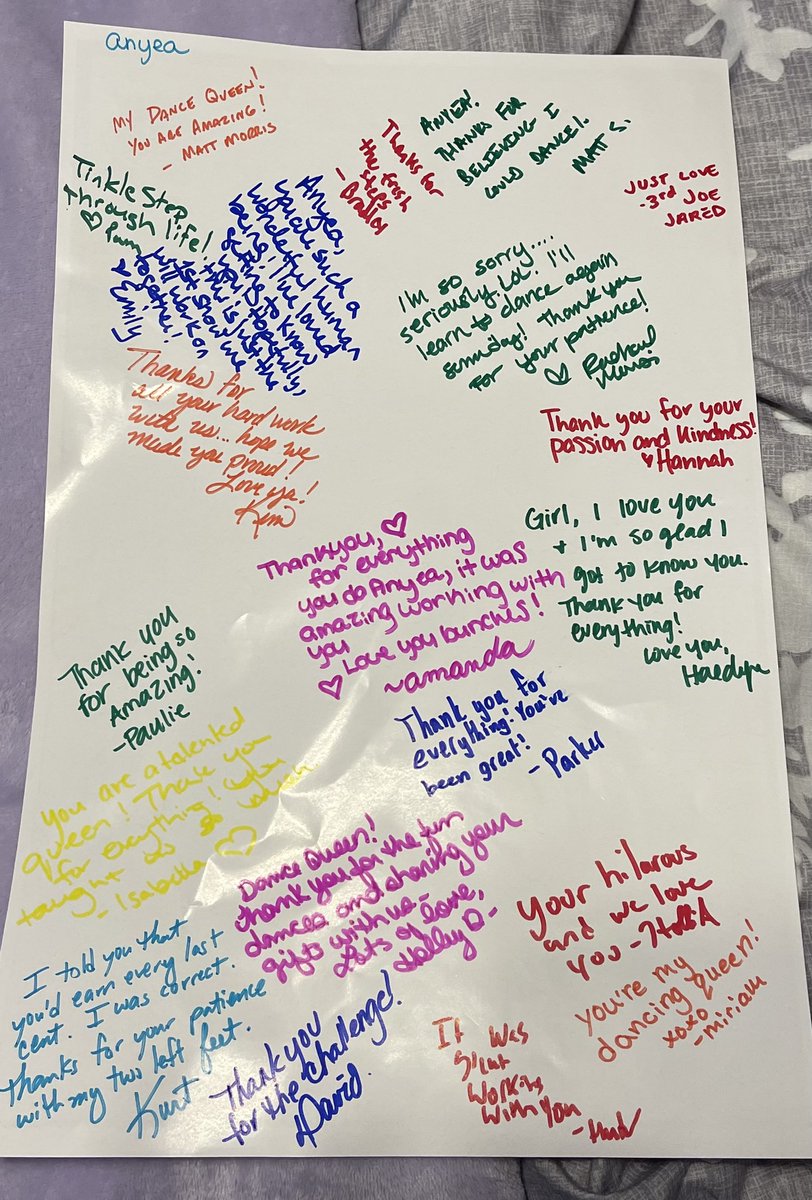 anyea
MY DANCE QUEEN!
YOU ARE AMAZING!
- MATT MORRIS
Thanks for
the first
steps
ANYEA!
THANKS FOR
BELIEVING I
COULD DANCE!
MATT S.
JUST LOVE
-3rd JOE
JARED
Tinkle Step
Through life!
♡ Pam
Anyea,
you are such a
wonderful human
being! I've loved
getting to know
you! Hopefully,
this is just the
1st show we
will work on
together!
♥ Emily
I'm so sorry....
seriously. LOL! I'll
learn to dance again
someday! Thank you
for your patience!
♡ Rachel
Thanks for
all your hard work
with us... hope we
made you proud!!
Love ya!
Kim
Thank you for your
passion and kindness!
♥Hannah
Girl, I love you
+ I'm so glad I
got to know you.
Thank you for
everything!
Love you,
Thankyou, ♡
for everything
you do Anyea, it was
amazing working with
you
♡ Love you bunches!
~amanda
Thank you
for being so
Amazing!
-Paulie
Thank you for
everything! You've
been great!
- Parker
you are a talented
queen! Thank you
for everything! You
taught us so much
- Isabella ♡
Dance Queen!
thank you for the fun
dances and sharing your
gifts with us -
Lots of love,
Holley D -
your hilarous
and we love
you -
I told you that
you'd earn every last
cent. I was correct.
Thanks for your patience
with my two left feet.
Kurt
you're my
dancing queen!
xoxo
-miriam
Thank you
for the challenge!
David
It was
working
with you